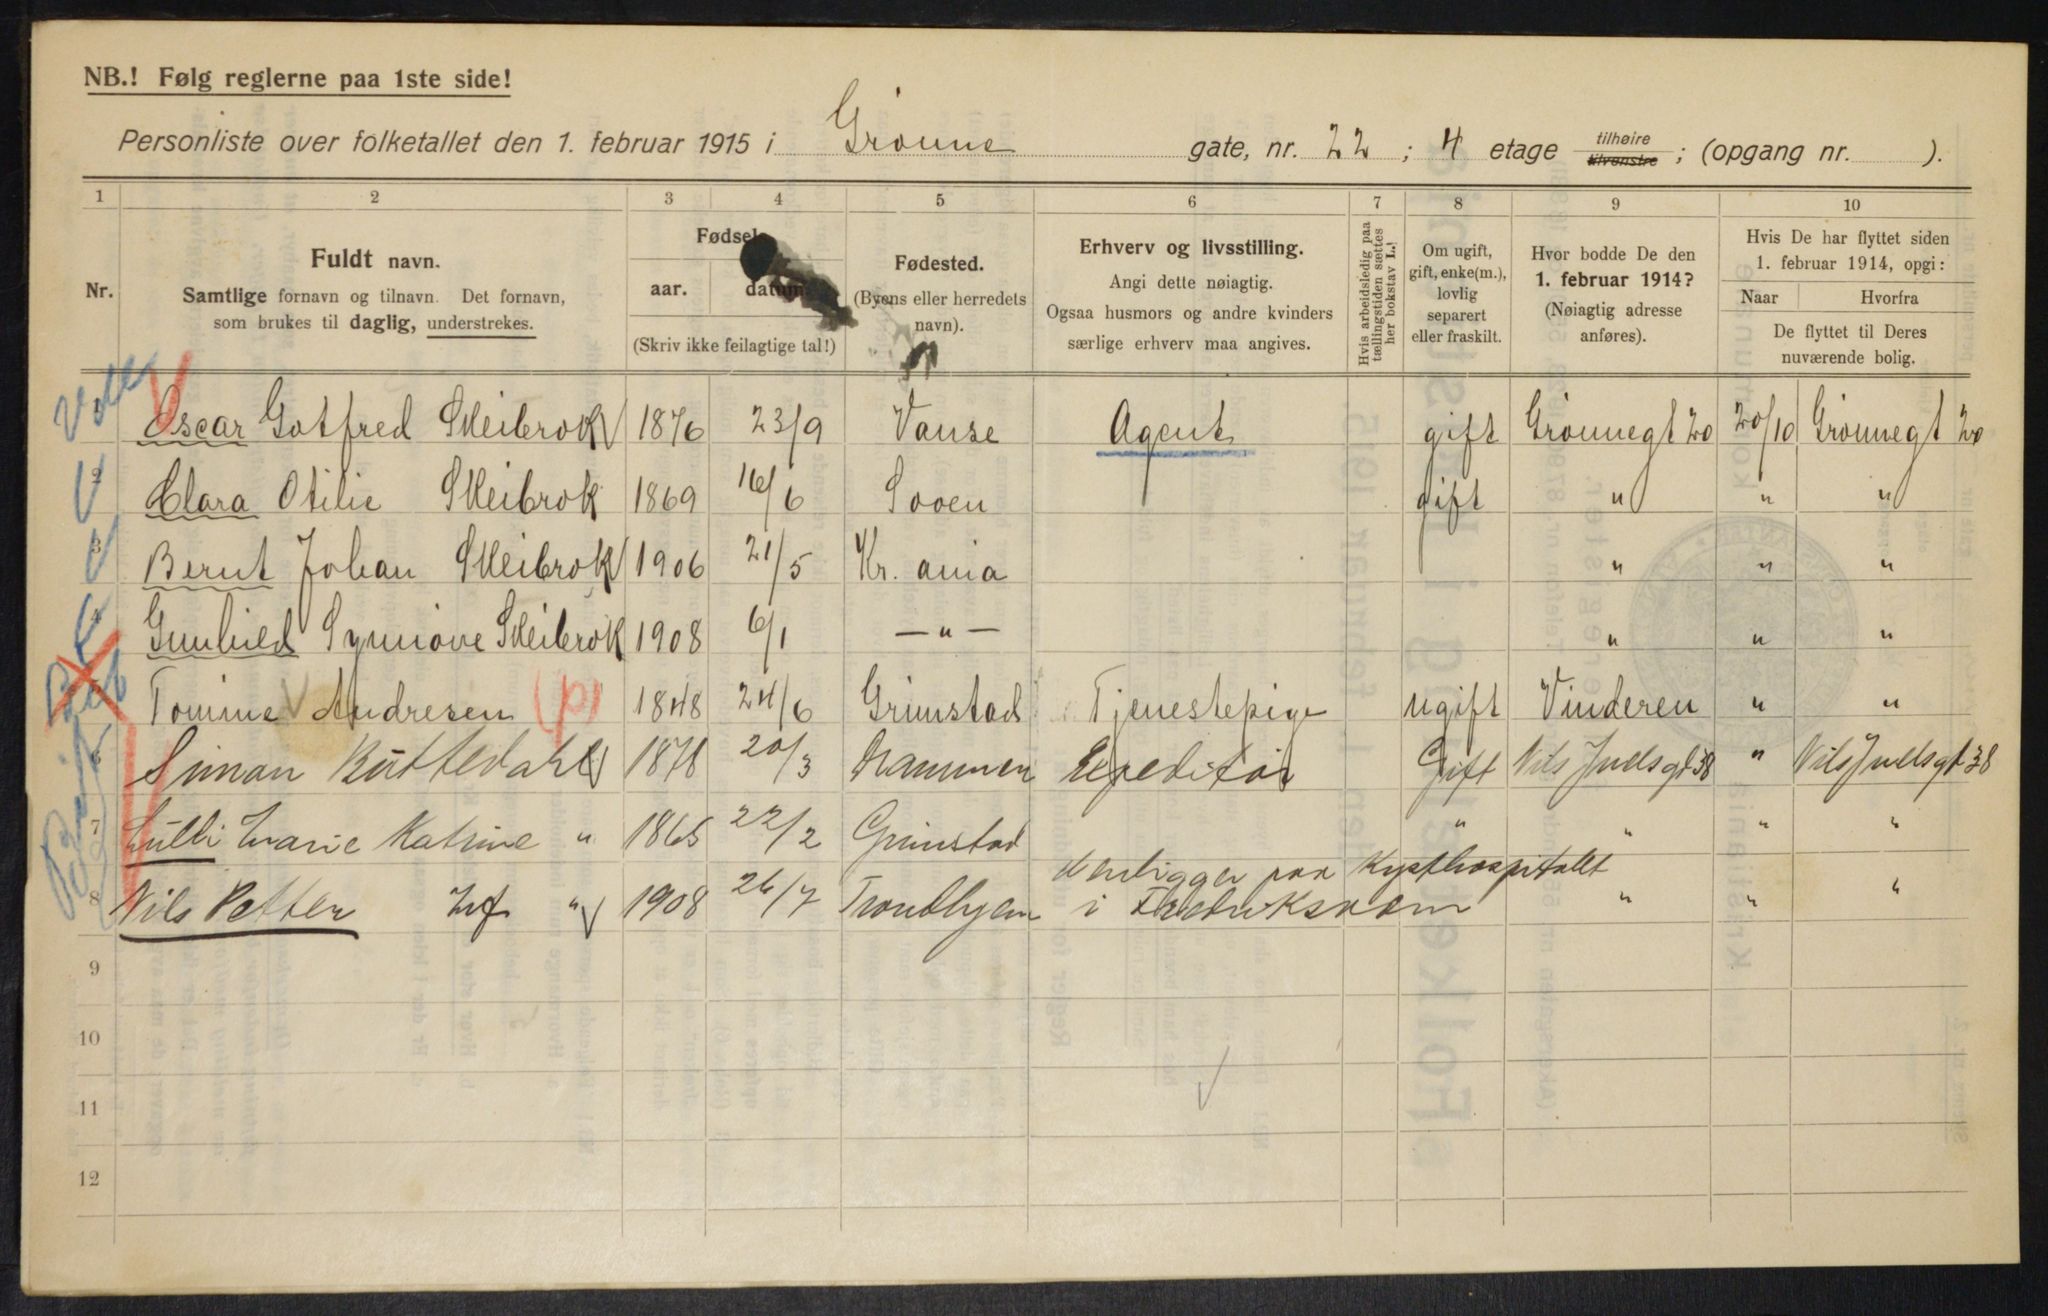 NB.! Følg reglerne paa 1ste side!
Personliste over folketallet den 1. februar 1915 i Grønne gate, nr. 22 ; 4 etage tilhøire tilvenstre ; (opgang nr. ).
1 2 3 4 5 6 7 8 9 10
Nr.
Fuldt navn.
Samtlige fornavn og tilnavn. Det fornavn,
som brukes til daglig, understrekes.
Fødsels
aar. datum.
(Skriv ikke feilagtige tal!)
Fødested.
(Byens eller herredets
navn).
Erhverv og livsstilling.
Angi dette nøiagtig.
Ogsaa husmors og andre kvinders
særlige erhverv maa angives.
Hvis arbeidsledig paa
tællingstiden sættes
her bokstav L.!
Om ugift,
gift, enke(m.),
lovlig
separert
eller fraskilt.
Hvor bodde De den
1. februar 1914?
(Nøiagtig adresse
anføres).
Hvis De har flyttet siden
1. februar 1914, opgi:
Naar Hvorfra
De flyttet til Deres
nuværende bolig.
Oscar Gotfred Skeibrok 1876 23/9 Vanse Agent gift Grønnegt 20 20/10 Grønnegt 20
2 Clara Otilie Skeibrok 1869 16/6 gift " " "
3 Bernt Johan Skeibrok 1906 21/5 Kr. ania " " "
4 Gunhild Synnøve Skeibrok 1908 6/1 — " — " " "
Tomine Andresen (p) 1848 24/6 Grimstad Tjenestepige ugift Vinderen " "
6 Simon Büttedahl 1878 20/3 Drammen Expeditør Gift Nils Juelsgt 38 " Nils Juelsgt 38
7 Lulli Marie Katrine " 1865 22/2 Grimstad " " " "
8 Nils Petter " 1908 26/7 Trondhjem denligger paa Kysthospitalet
i Fredriksværn " " "
9
10
11
12